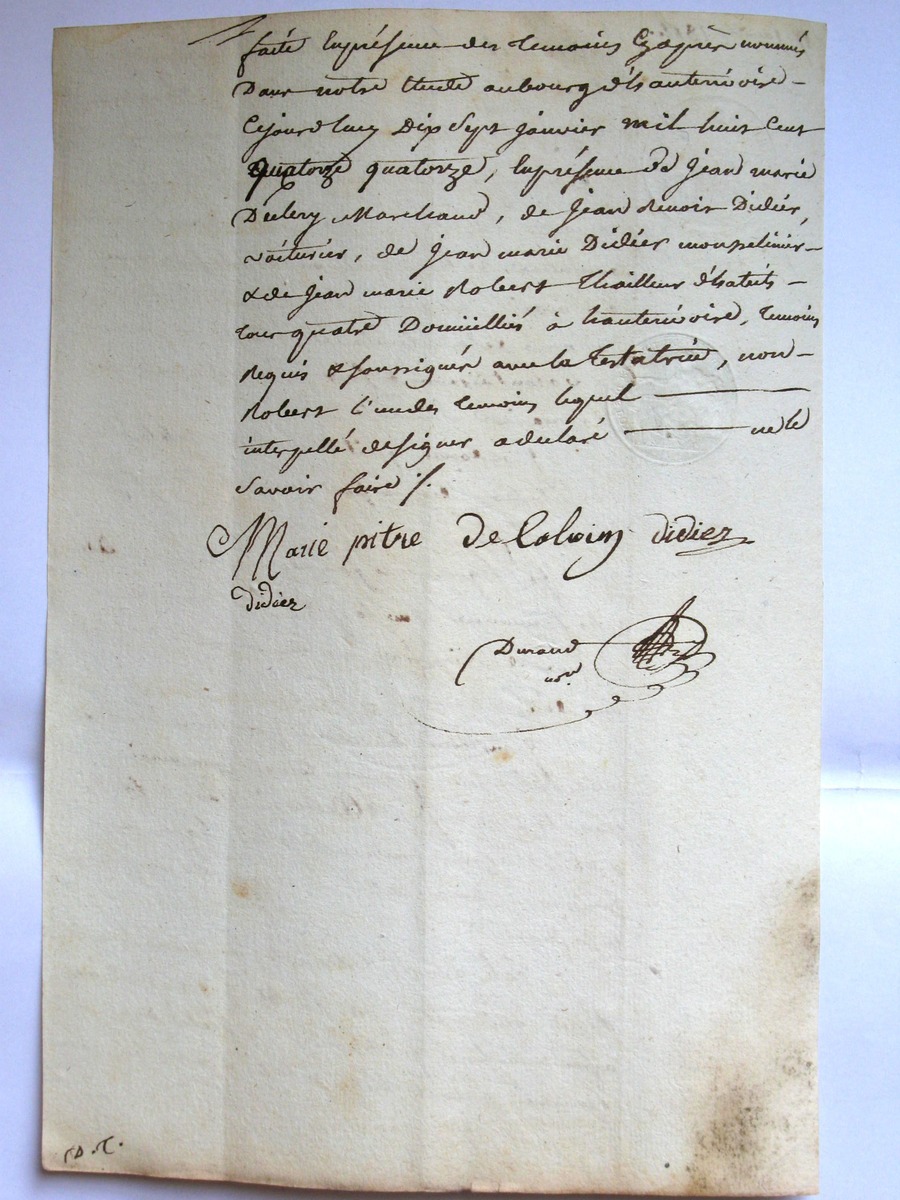 faite en présence des temoins cy après nommés
Dans notre étude au bourg d'hauterivoire -
Cejourd'huy Dix Sept janvier mil huit Cent
quatorze quatorze, En présence de jean marie
Marchand, de jean Benoit Didier,
voiturier, de jean marie Didier -
& de jean marie Robert thailleur d'habits -
tous quatre Domiciliés à hauterivoire, temoins
Requis & soussignés avec la Testatrice, non -
Robert l'un des temoins lequel
interpellé de signer a déclaré ne le
savoir faire ./.
Marie pitre de didier
didier
Durand
not.
D.T.